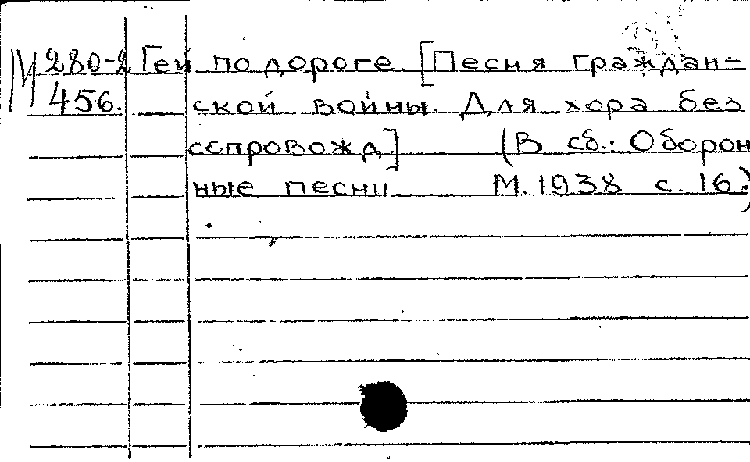 М 280-2 Гей по дороге [Песня граждан-
456. ской войны. Для хора без
сопровожд] (В сб.: Оборон
ные песни М. 1938 с. 16.)